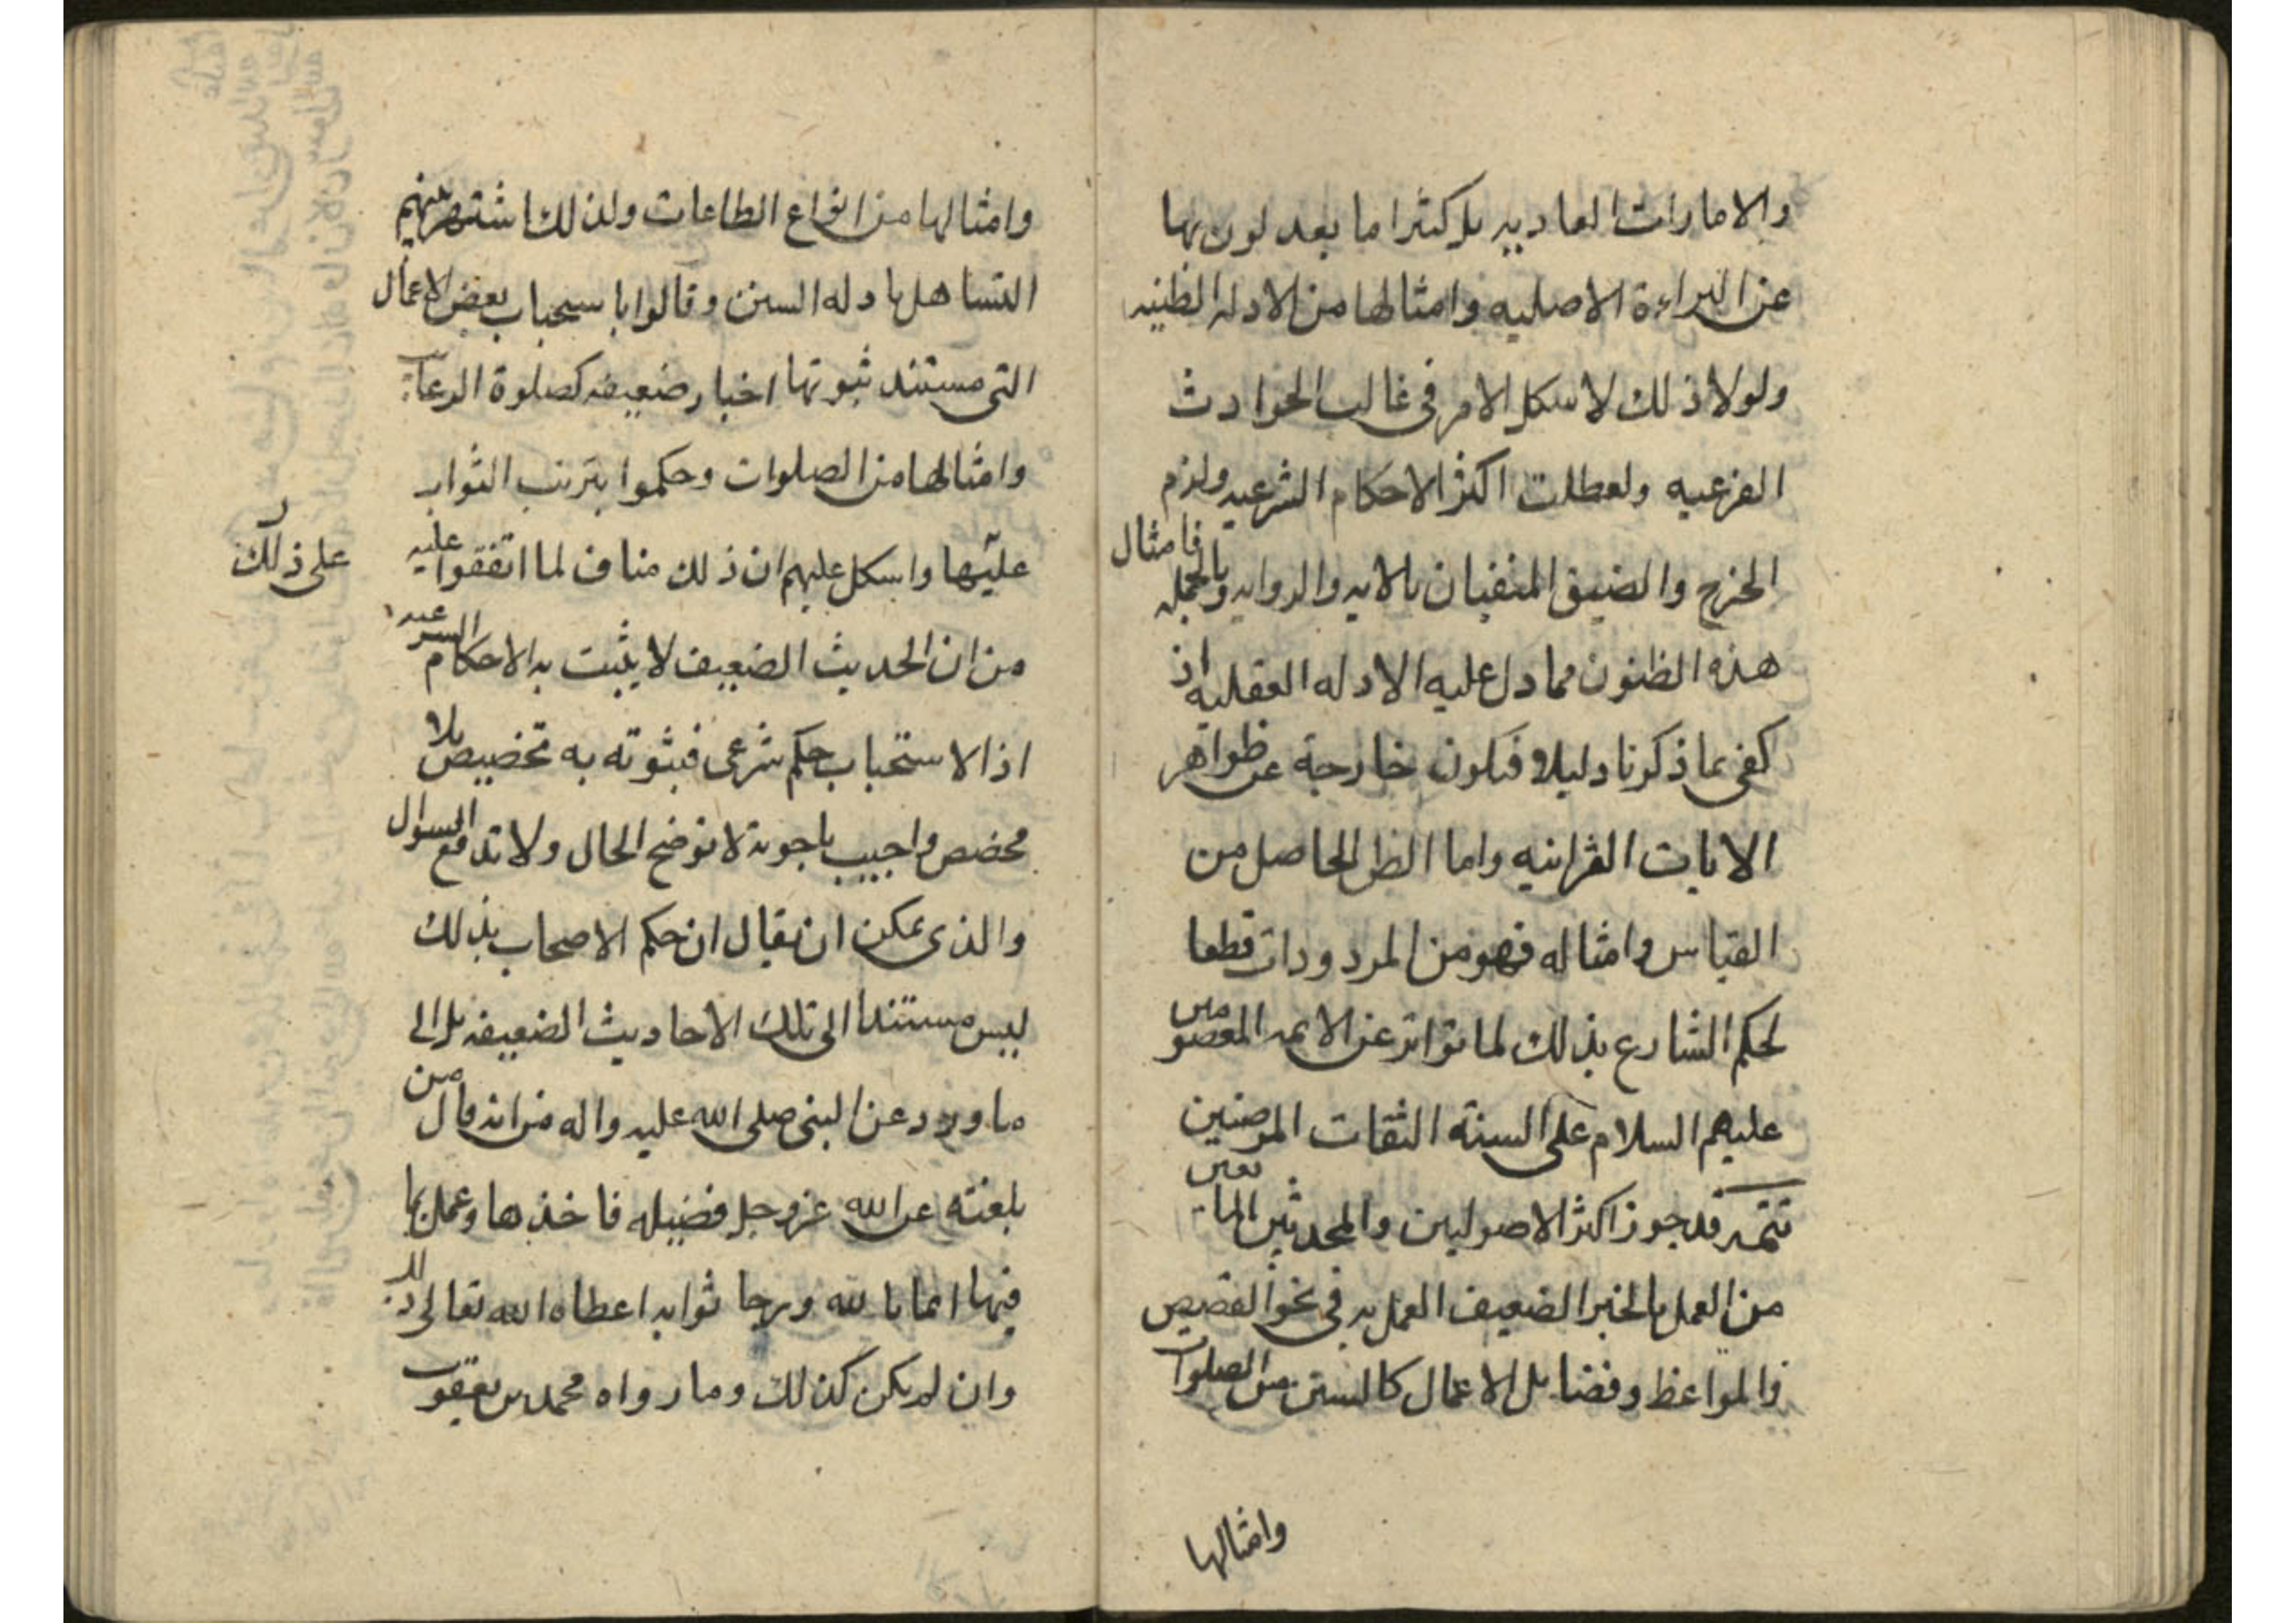 والامارات العاديه بل كثيرا ما يعدلون بها
عن البراءة الاصليه وامثالها من الادله الظنيه
ولولا ذلك لاشكل الامر فى غالب الحوادث
الفرعيه ولعطلت اكثر الاحكام الشرعيه ولزم
الحرج والضيق المنفيان بالايه والروايه وبالجمله فامثال
هذه الظنون مما دل عليه الادله العقليه اذ
كفى بما ذكرنا دليلا فيكون خارجة عن ظواهر
الايات القرانيه واما الظن الحاصل من
القياس وامثاله فهو من المردودات قطعا
لحكم الشارع بذلك لما تواتر عن الايمه المعصومين
عليهم السلام على السنة الثقات المرضيين
تتمه قد جوز اكثر الاصوليين والمحدثين المانعين
من العمل بالخبر الضعيف العمل به فى نحو القصيص
والمواعظ وفضايل الاعمال كالسنن من الصلوات
وامثالها
وامثالها من انواع الطاعات ولذلك اشتهر عنهم
التساهل بادله السنن وقالوا باستحباب بعض الاعمال
التى مستند ثبوتها اخبار ضعيفه كصلوة الرغايب
وامثالها من الصلوات وحكموا بترتب الثواب
عليها واشكل عليهم ان ذلك مناف لما اتفقوا عليه
على ذلك
من ان الحديث الضعيف لا يثبت به الاحكام الشرعيه
اذ الاستحباب حكم شرعى فثبوته به تخصيص بلا
مخصص واجيب باجوبة لا توضح الحال ولا تدفع السوال
والذى يمكن ان يقال ان حكم الاصحاب بذلك
ليس مستندا الى تلك الاحاديث الضعيفه بل الى
ما ورد عن النبى صلى الله عليه واله من انه قال من
بلغته عن الله عز وجل فضيله فاخذها وعمل بما
فيها ايمانا بالله ورجا ثوابه اعطاه الله تعالى ذلك
وان لم يكن كذلك وما رواه محمد بن يعقوب